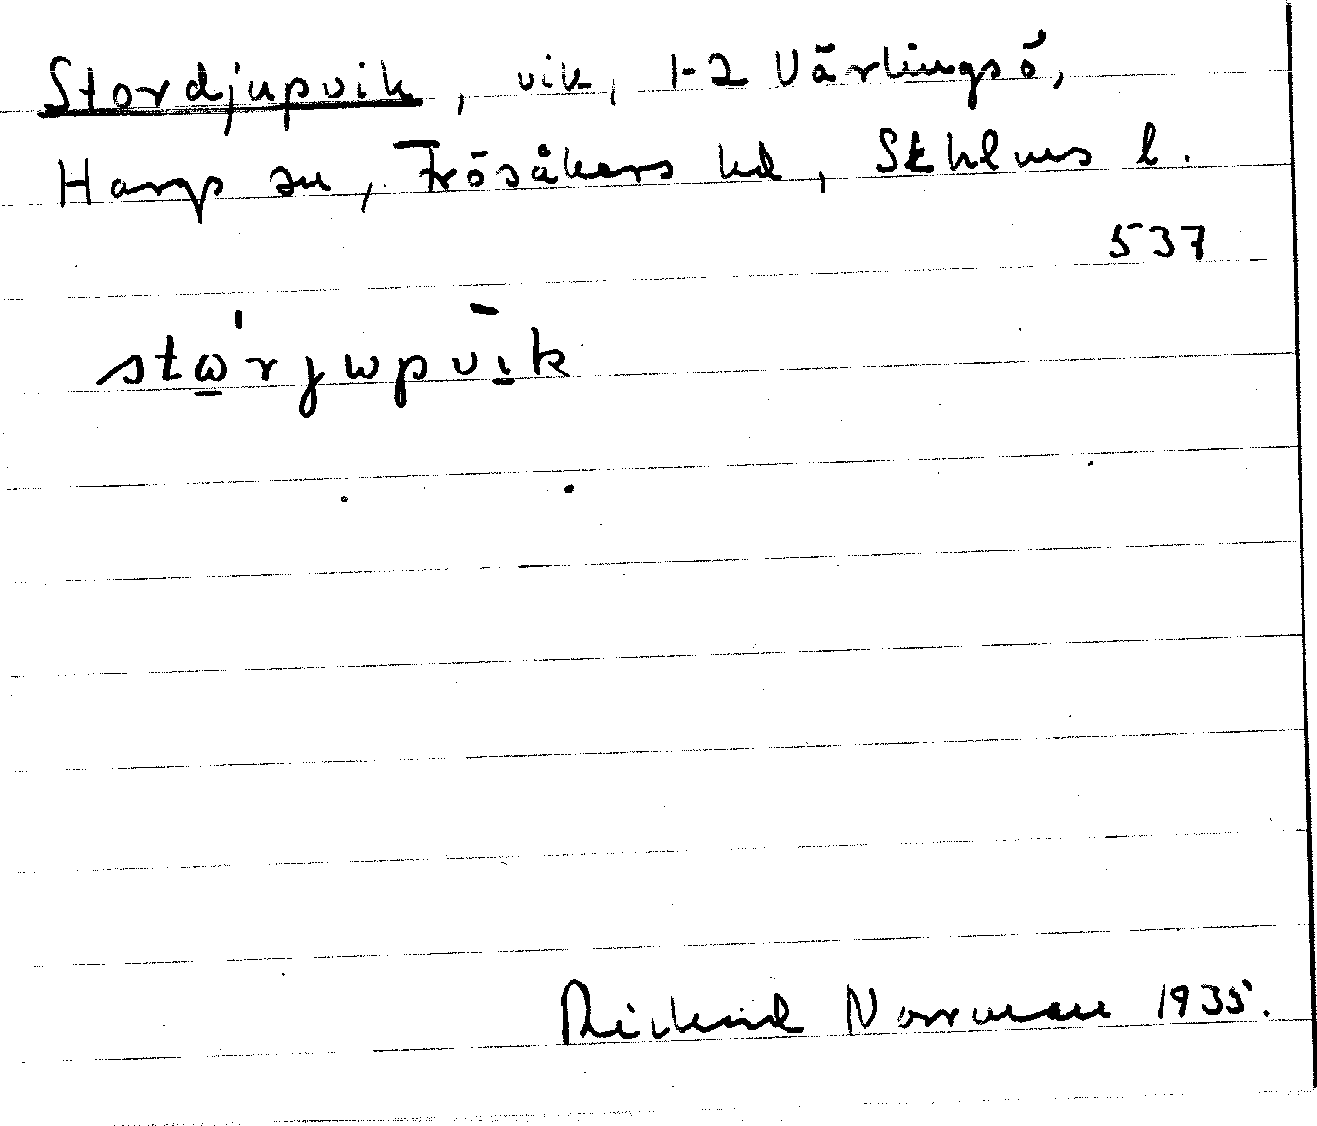 Stordjupvik, vik, 1-2 Värlingsö,
Hargs sn, Frösåkers hd, Sthlms l.
537
stώ̲rjwpvī̲k
Rickard Norrman 1935.